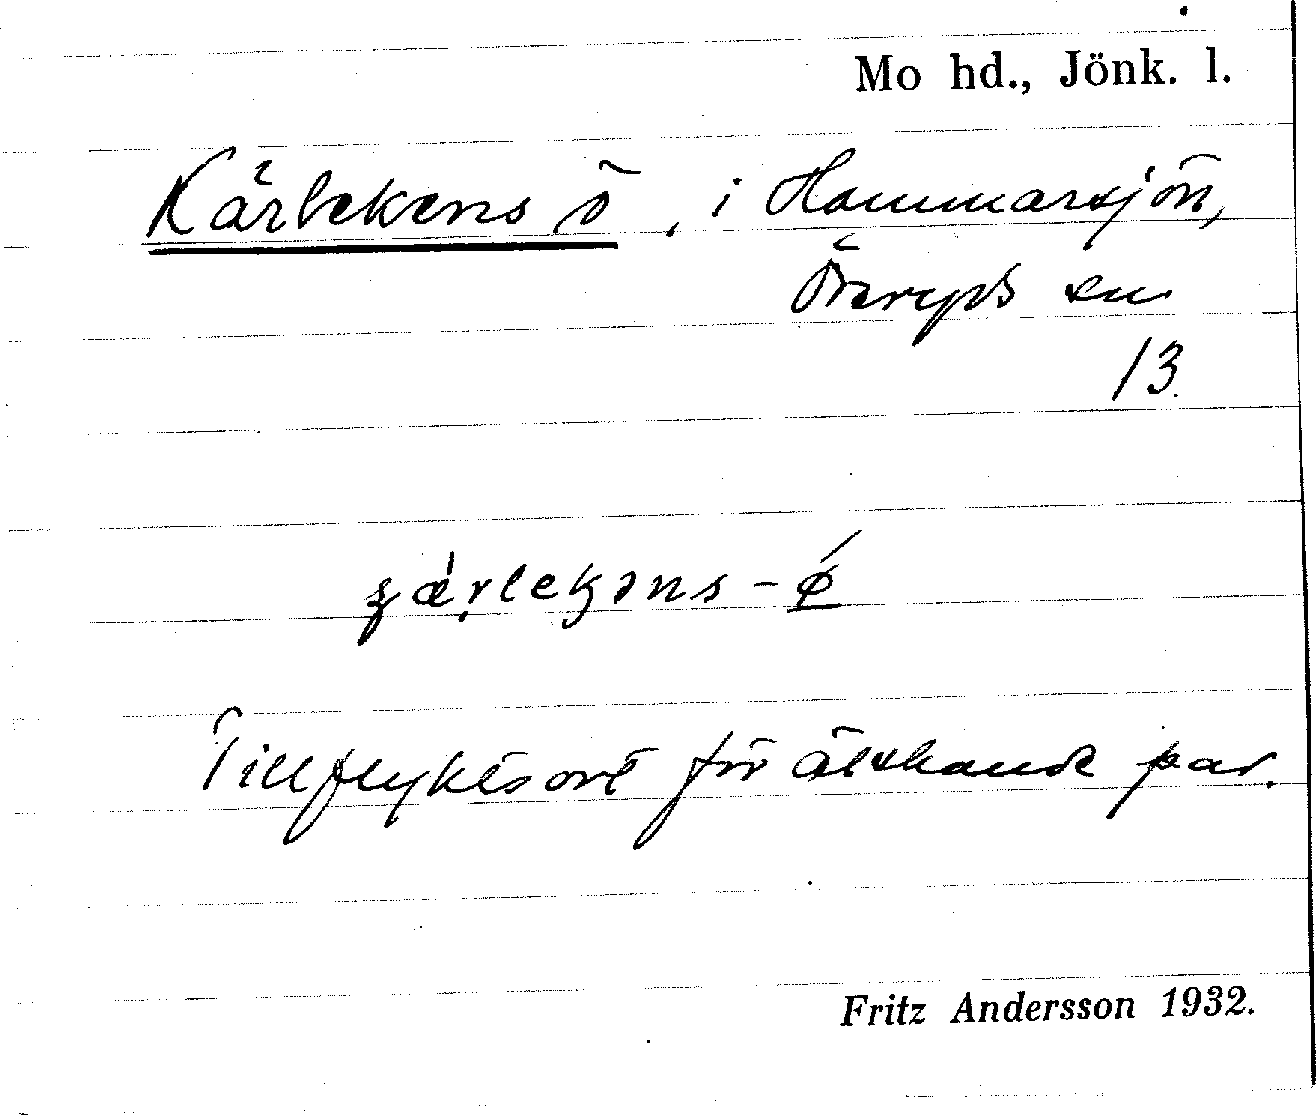 Mo hd., Jönk. l.
Kärlekens ö, i Hammarsjön,
Öreryds sn
13.
Tillflyktsort för älskande par.
Fritz Andersson 1932.